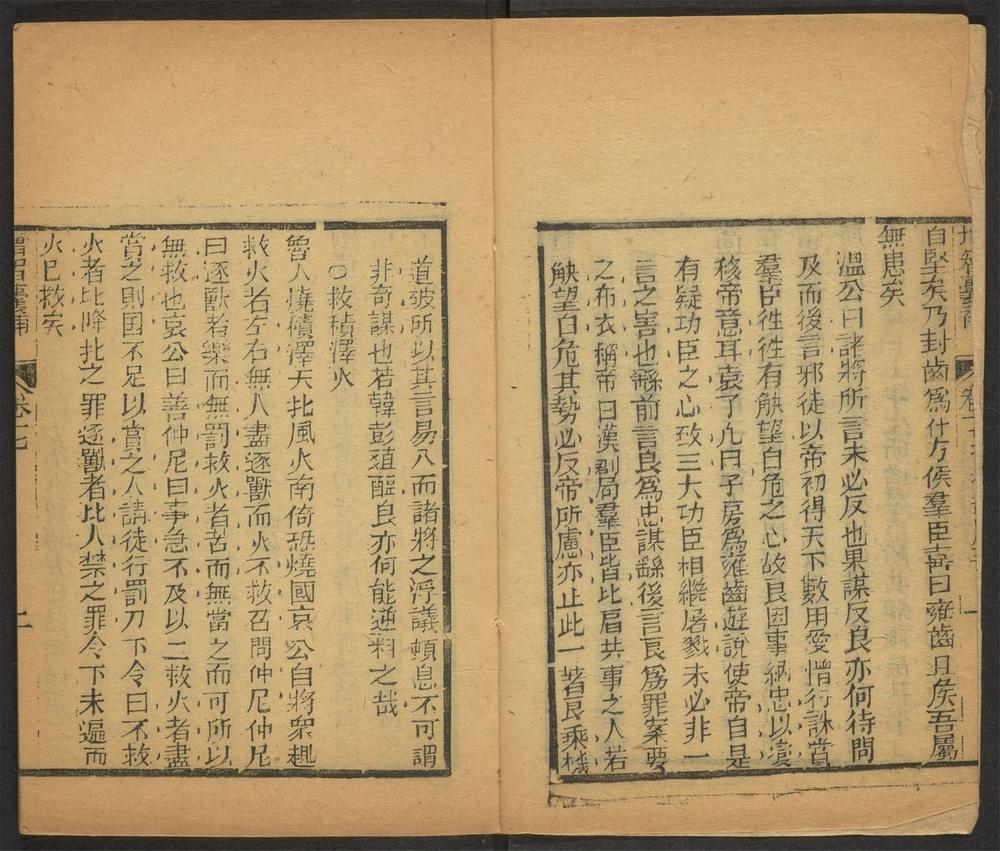 增智囊補
卷十七
自堅矣乃封齒爲什方侯羣臣喜曰雍齒且矦吾屬
無患矣
溫公曰諸將所言未必反也果謀反良亦何待問
及而後言邪徒以帝初得天下數用愛憎行誅賞
羣臣徃徃有觖望自危之心故良因事納忠以變
移帝意耳袁了凡曰子房爲雍齒遊說使帝自是
有疑功臣之心致三大功臣相繼屠戮未必非一
言之害也繇前言良爲忠謀繇後言良爲罪案要
之布衣稱帝曰漢剏局羣臣皆比肩共事之人若
觖望白危其勢必反帝所慮亦止此一著良乘機
道破所以其言易入而諸將之浮議頓息不可謂
非奇謀也若韓彭葅醢良亦何能逆料之哉
○救積澤火
魯人燒積澤天北風火南倚恐燒國哀公自將衆趨
救火者左右無人盡逐獸而火不救召問仲尼仲尼
曰逐獸者樂而無罰救火者苦而無賞之而可所以
無救也哀公曰善仲尼曰事急不及以二救火者盡
賞之則國不足以賞之人請徒行罰刀下令曰不救
火者比降北之罪逐獸者比人禁之罪令下未遍而
火已救矣
增智囊補
卷十七
二